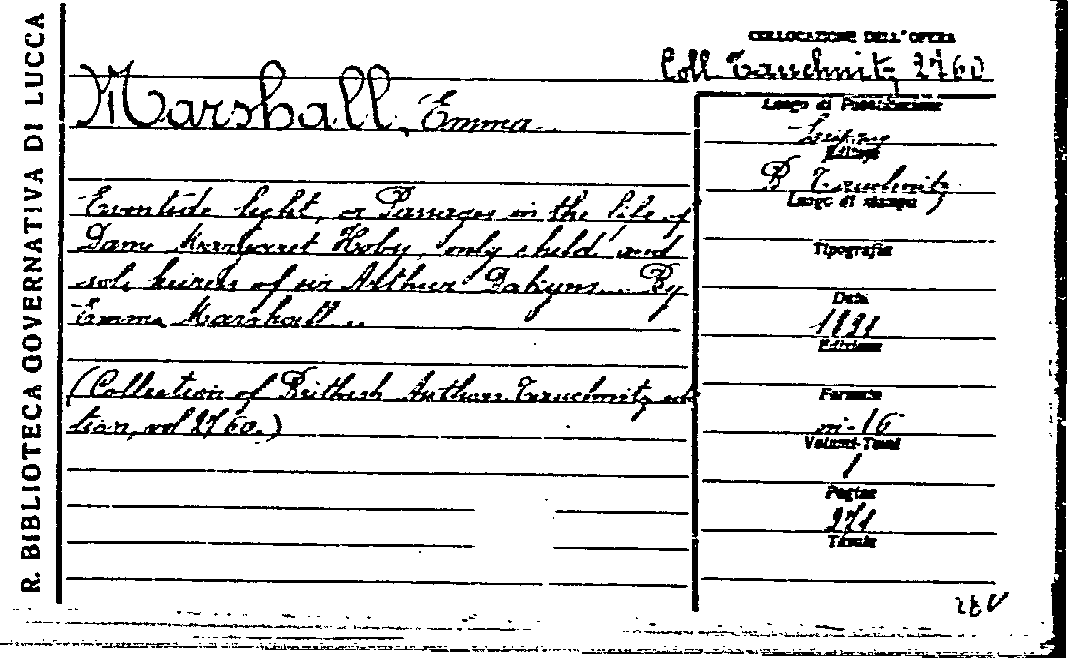 R. BIBLIOTECA GOVERNATIVA DI LUCCA
COLLOCAZIONE DELL'OPERA
Coll. Tauchnitz 2760
Marshall, Emma.
Eventide light, or Passages in the life of
Dame Margaret Hoby, only child and
sole heiress of sir Arthur Dakyns... By
Emma Marshall...
(Collection of Brithish Authors Tauchnitz edi
tion, vol 2760.)
Luogo di Pubblicazione
Leipzig
Editore
B. Tauchnitz
Luogo di stampa
Tipografia
Data
1891
Edizione
Formato
in-16
Volumi-Tomi
1
Pagine
271
Tavole